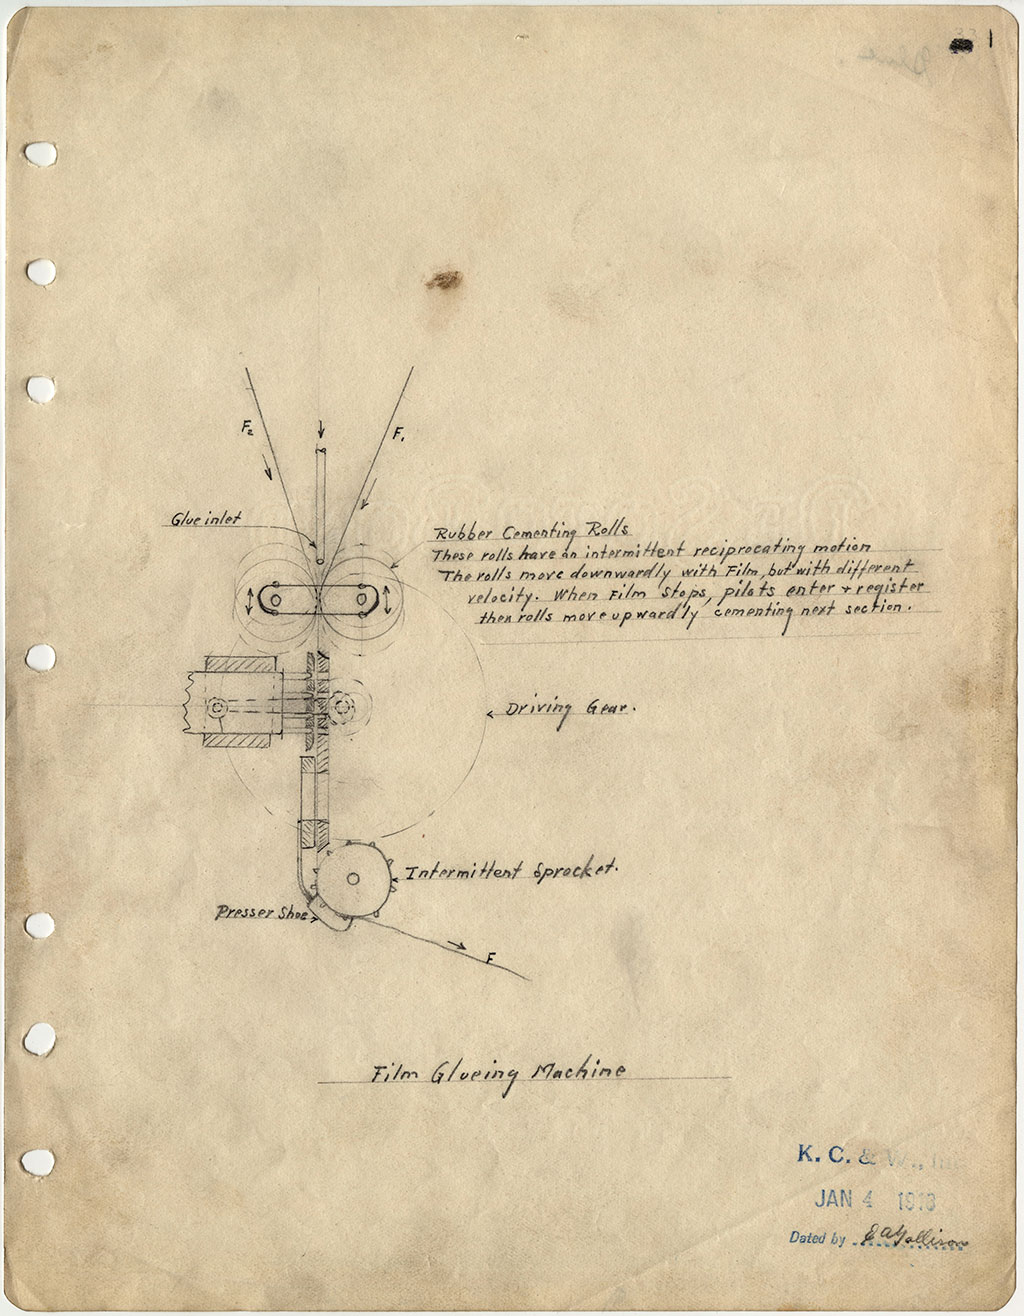 1
F2
F1
Glue inlet
Rubber Cementing Rolls
These rolls have an intermittent reciprocating motion
The rolls move downwardly with Film, but with different
velocity. When Film stops, pilots enter + register
then rolls move upwardly cementing next section.
Driving Gear.
Intermittent Sprocket.
Presser Shoe
F
Film Glueing Machine
K. C. & W., Inc.
JAN 4 1918
Dated by